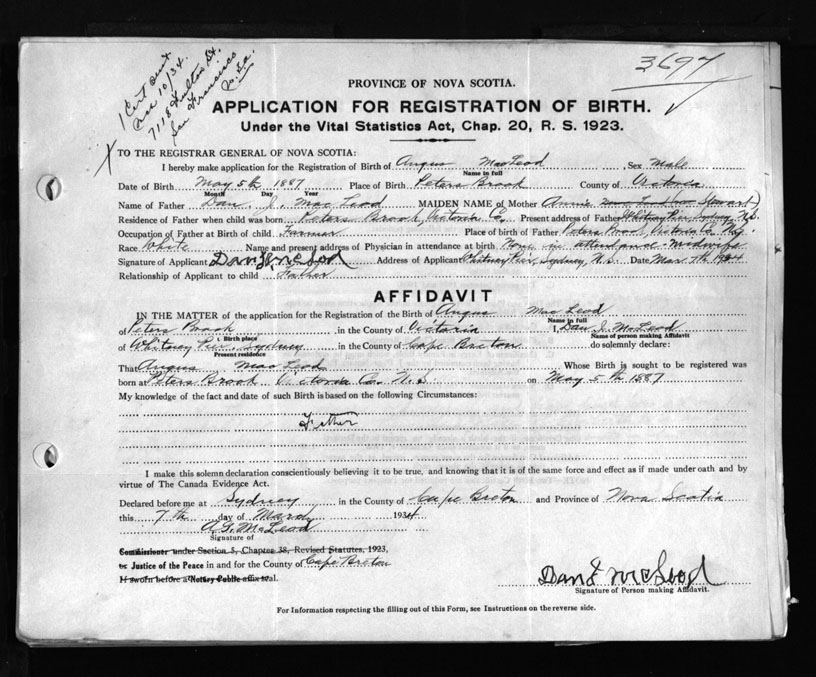 1 Cert sent
Mar 10/34.
7118 Fulton St.
San Francisco
U.S.a.
3697
PROVINCE OF NOVA SCOTIA.
APPLICATION FOR REGISTRATION OF BIRTH.
Under the Vital Statistics Act, Chap. 20, R. S. 1923.
TO THE REGISTRAR GENERAL OF NOVA SCOTIA:
I hereby make application for the Registration of Birth of Angus MacLeod Sex Male
Name in full
Date of Birth May 5th 1887 Place of Birth Peters Brook County of Victoria
Month Day Year
Name of Father Dan J. MacLeod MAIDEN NAME of Mother Annie Stewart
Residence of Father when child was born Peters Brook, Victoria Co. Present address of Father Whitney Pier, Sydney, N.S.
Occupation of Father at Birth of child Farmer Place of birth of Father Peters Brook, Victoria Co. N.S.
Race White Name and present address of Physician in attendance at birth None in attendance-midwife
Signature of Applicant Dan J McLeod Address of Applicant Whitney Pier, Sydney, N.S. Date Mar 7th 1934
Relationship of Applicant to child Father
AFFIDAVIT
IN THE MATTER of the application for the Registration of the Birth of Angus MacLeod
Name in full
of Peters Brook in the County of Victoria I, Dan J. MacLeod
Birth place Name of person making Affidavit
of Whitney Pier, Sydney in the County of Cape Breton do solemnly declare:
Present residence
That Angus MacLeod Whose Birth is sought to be registered was
born at Peters Brook Victoria Co. N.S on May 5th 1887
My knowledge of the fact and date of such Birth is based on the following Circumstances:
Father
I make this solemn declaration conscientiously believing it to be true, and knowing that it is of the same force and effect as if made under oath and by
virtue of The Canada Evidence Act.
Declared before me at Sydney in the County of Cape Breton and Province of Nova Scotia
this 7th day of March 1934
A.G. McLeod
Signature of
Commissioner under Section 5, Chapter 38, Revised Statutes, 1923,
or Justice of the Peace in and for the County of Cape Breton
If sworn before a Notary Public affix seal.
Dan J McLeod
Signature of Person making Affidavit.
For Information respecting the filling out of this Form, see Instructions on the reverse side.